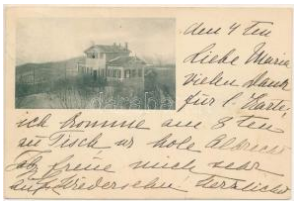 den 4 ten
Liebe Maria
vielen Dank
für l. Karte!
ich komme am 8 ten
zu Tisch u hole Albrecht
ab freue mich sehr
auf Wiedersehn! Herzlichst